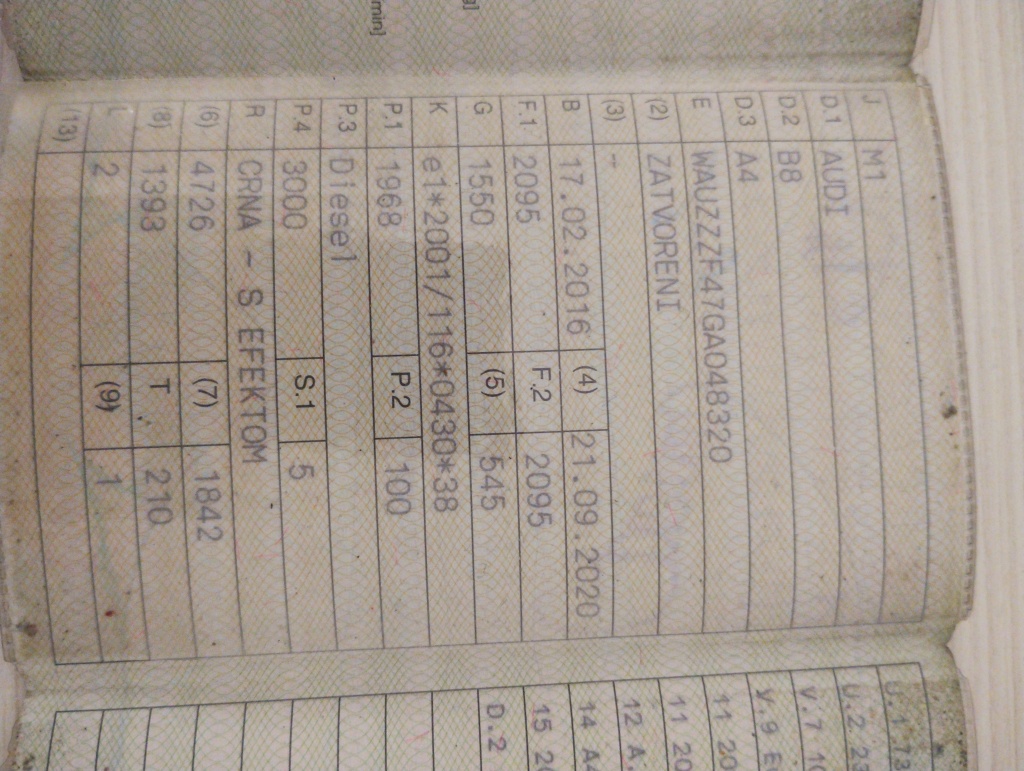 J M1
D.1 AUDI
D.2 B8
D.3 A4
E WAUZZZF47GA048320
(2) ZATVORENI
(3) -
B 17.02.2016 (4) 21.09.2020
F.1 2095 F.2 2095
G 1550 (5) 545
K e1*2001/116*0430*38
P.1 1968 P.2 100
P.3 Diesel
P.4 3000 S.1 5
R CRNA - S EFEKTOM
(6) 4726 (7) 1842
(8) 1393 T 210
L 2 (9) 1
(13)
min]
U.1 73
U.2 23
V.7 10
V.9
11 20
11 20
12 A.
14
15
D.2